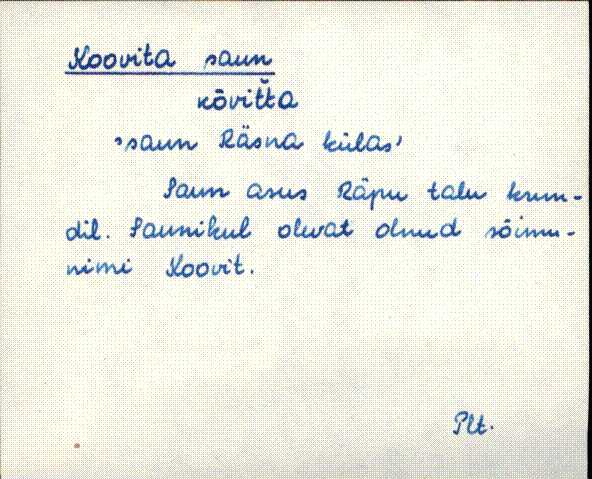 Koovita saun
kōvit̆t̆a
'saun Räsna külas'
Saun asus Räpu talu krun-
dil. Saunikul olevat olnud sõimu-
nimi Koovit.
Plt.